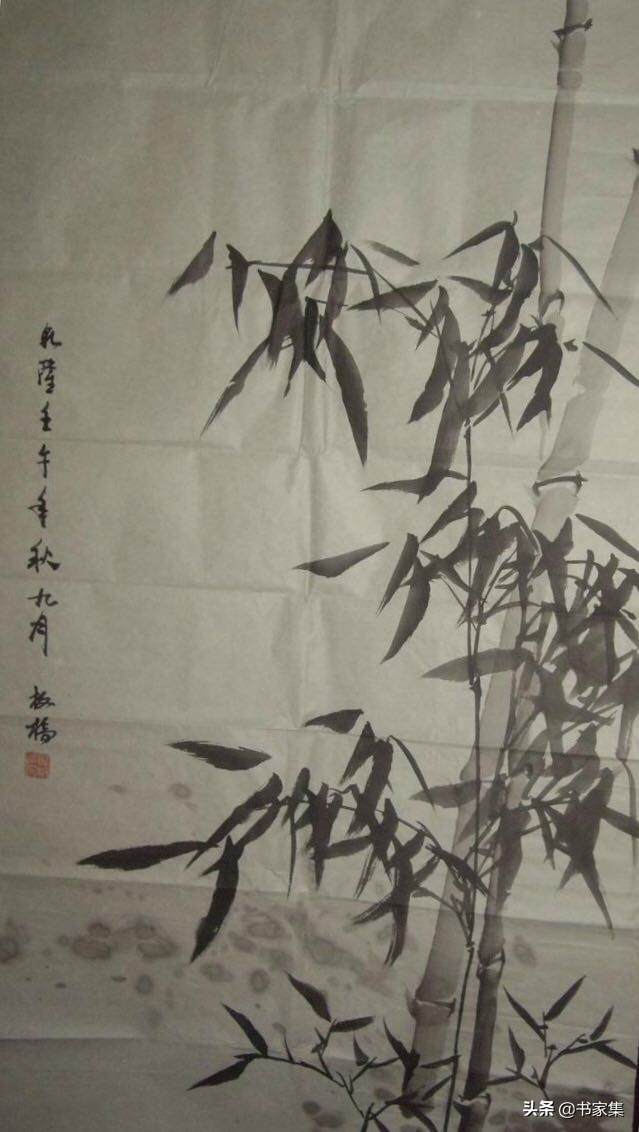 乾隆壬午年秋九月 板橋
头条 @书家集